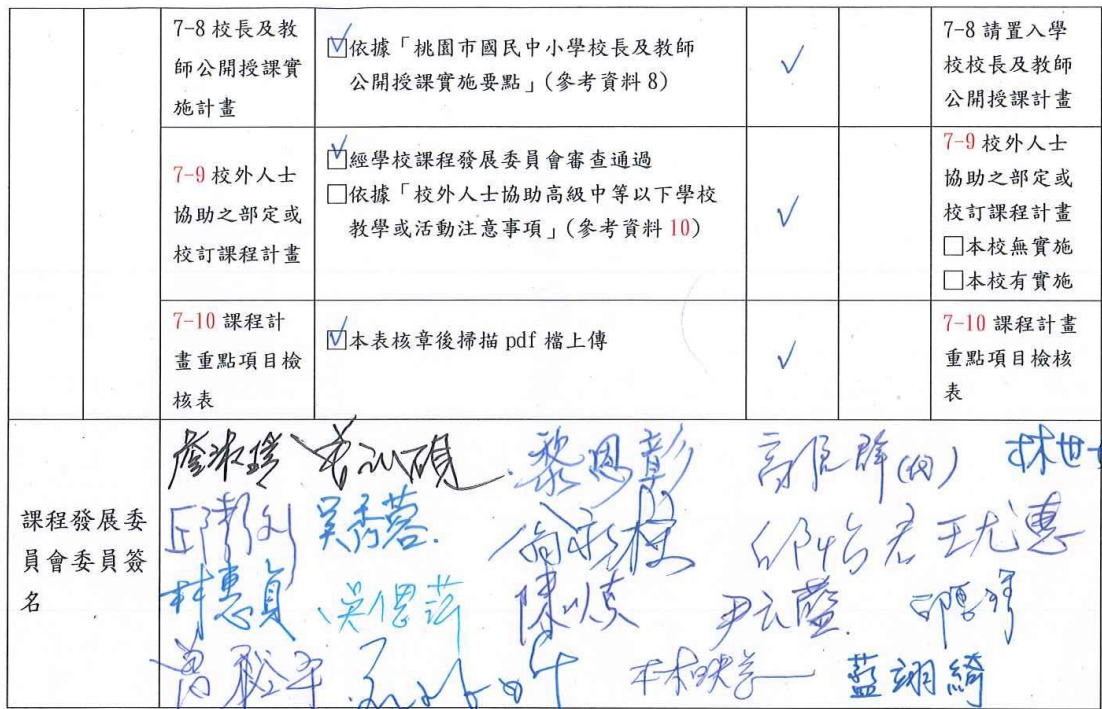 7-8 校長及教
師公開授課實
施計畫
☑依據「桃園市國民中小學校長及教師
公開授課實施要點」(參考資料 8)
✓
7-8 請置入學
校校長及教師
公開授課計畫
7-9 校外人士
協助之部定或
校訂課程計畫
☑經學校課程發展委員會審查通過
□依據「校外人士協助高級中等以下學校
教學或活動注意事項」(參考資料 10)
✓
7-9 校外人士
協助之部定或
校訂課程計畫
□本校無實施
□本校有實施
7-10 課程計
畫重點項目檢
核表
☑本表核章後掃描 pdf 檔上傳
✓
7-10 課程計畫
重點項目檢核
表
課程發展委
員會委員簽
名
黎恩彰
林世
吳秀蓉
王尤惠
林惠貞
吳偲萍
尹云藍
曾裕平
藍翊綺